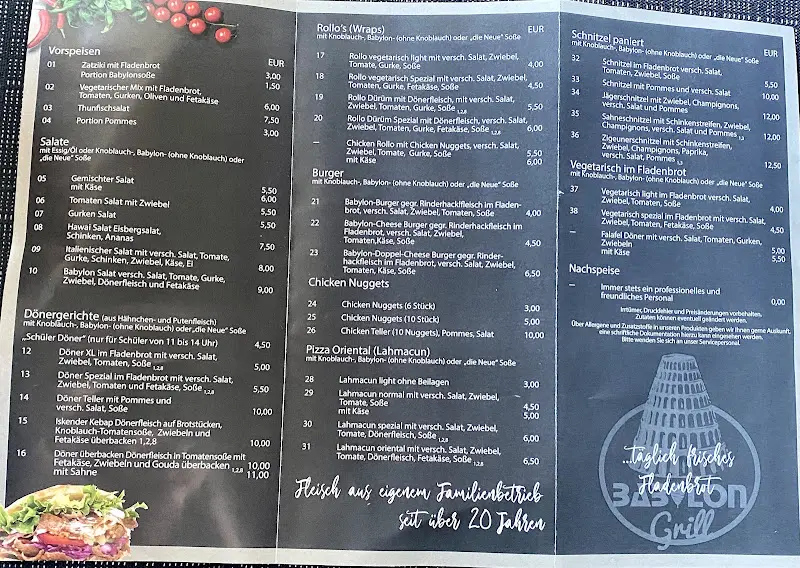 Vorspeisen
EUR
01 Zatziki mit Fladenbrot 3,00
Portion Babylonsoße 1,50
02 Vegetarischer Mix mit Fladenbrot,
Tomaten, Gurken, Oliven und Fetakäse 6,00
03 Thunfischsalat 7,50
04 Portion Pommes 3,00
Salate
mit Essig/Öl oder Knoblauch-, Babylon- (ohne Knoblauch) oder
„die Neue" Soße
05 Gemischter Salat 5,50
mit Käse 6,00
06 Tomaten Salat mit Zwiebel 5,50
07 Gurken Salat 5,50
08 Hawai Salat Eisbergsalat,
Schinken, Ananas 7,50
09 Italienischer Salat mit versch. Salat, Tomate,
Gurke, Schinken, Zwiebel, Käse, Ei 8,00
10 Babylon Salat versch. Salat, Tomate, Gurke,
Zwiebel, Dönerfleisch und Fetakäse 9,00
Dönergerichte (aus Hähnchen- und Putenfleisch)
mit Knoblauch-, Babylon- (ohne Knoblauch) oder „die neue" Soße
„Schüler Döner" (nur für Schüler von 11 bis 14 Uhr) 4,50
12 Döner XL im Fladenbrot mit versch. Salat,
Zwiebel, Tomaten, Soße 1,2,8 5,00
13 Döner Spezial im Fladenbrot mit versch. Salat,
Zwiebel, Tomaten und Fetakäse, Soße 1,2,8 5,50
14 Döner Teller mit Pommes und
versch. Salat, Soße 10,00
15 Iskender Kebap Dönerfleisch auf Brotstücken,
Knoblauch-Tomatensoße, Zwiebeln und
Fetakäse überbacken 1,2,8 10,00
16 Döner überbacken Dönerfleisch in Tomatensoße mit
Fetakäse, Zwiebeln und Gouda überbacken 1,2,8 10,00
mit Sahne 11,00
Rollo's (Wraps) EUR
mit Knoblauch-, Babylon- (ohne Knoblauch) oder „die neue" Soße
17 Rollo vegetarisch light mit versch. Salat, Zwiebel,
Tomate, Gurke, Soße 4,00
18 Rollo vegetarisch Spezial mit versch. Salat, Zwiebel,
Tomaten, Gurke, Fetakäse, Soße 4,50
19 Rollo Dürüm mit Dönerfleisch, mit versch. Salat,
Zwiebel, Tomaten, Gurke, Soße 1,2,8 5,50
20 Rollo Dürüm Spezial mit Dönerfleisch, versch. Salat,
Zwiebel, Tomaten, Gurke, Fetakäse, Soße 1,2,8 6,00
– Chicken Rollo mit Chicken Nuggets, versch. Salat,
Zwiebel, Tomate, Gurke, Soße 5,50
mit Käse 6,00
Burger
mit Knoblauch-, Babylon- (ohne Knoblauch) oder „die neue" Soße
21 Babylon-Burger gegr. Rinderhackfleisch im Fladen-
brot, versch. Salat, Zwiebel, Tomaten, Soße 4,00
22 Babylon-Cheese Burger gegr. Rinderhackfleisch im
Fladenbrot, versch. Salat, Zwiebel,
Tomaten,Käse, Soße 4,50
23 Babylon-Doppel-Cheese Burger gegr. Rinder-
hackfleisch im Fladenbrot, versch. Salat, Zwiebel,
Tomaten, Käse, Soße 6,50
Chicken Nuggets
24 Chicken Nuggets (6 Stück) 3,00
25 Chicken Nuggets (10 Stück) 5,00
26 Chicken Teller (10 Nuggets), Pommes, Salat 10,00
Pizza Oriental (Lahmacun)
mit Knoblauch-, Babylon- (ohne Knoblauch) oder „die neue" Soße
28 Lahmacun light ohne Beilagen 3,00
29 Lahmacun normal mit versch. Salat, Zwiebel,
Tomate, Soße 4,50
mit Käse 5,00
30 Lahmacun spezial mit versch. Salat, Zwiebel,
Tomate, Dönerfleisch, Soße 1,2,8 6,00
31 Lahmacun oriental mit versch. Salat, Zwiebel,
Tomate, Dönerfleisch, Fetakäse, Soße 1,2,8 6,50
Fleisch aus eigenem Familienbetrieb
seit über 20 Jahren
Schnitzel paniert
mit Knoblauch-, Babylon- (ohne Knoblauch) oder „die neue" Soße EUR
32 Schnitzel im Fladenbrot versch. Salat,
Tomaten, Zwiebel, Soße 5,50
33 Schnitzel mit Pommes und versch. Salat 10,00
34 Jägerschnitzel mit Zwiebel, Champignons,
versch. Salat und Pommes 12,00
35 Sahneschnitzel mit Schinkenstreifen, Zwiebel,
Champignons, versch. Salat und Pommes 1,3 12,00
36 Zigeunerschnitzel mit Schinkenstreifen,
Zwiebel, Champignons, Paprika,
versch. Salat, Pommes 1,3 12,50
Vegetarisch im Fladenbrot
mit Knoblauch-, Babylon- (ohne Knoblauch) oder „die neue" Soße
37 Vegetarisch light im Fladenbrot mit versch. Salat,
Zwiebel, Tomaten, Soße 4,00
38 Vegetarisch spezial im Fladenbrot mit versch. Salat,
Zwiebel, Tomaten, Fetakäse, Soße 4,50
– Falafel Döner mit versch. Salat, Tomaten, Gurken,
Zwiebeln 5,00
mit Käse 5,50
Nachspeise
– Immer stets ein professionelles und
freundliches Personal 0,00
Irrtümer, Druckfehler und Preisänderungen vorbehalten.
Zutaten können eventuell geändert werden.
Über Allergene und Zusatzstoffe in unseren Produkten geben wir Ihnen gerne Auskunft,
eine schriftliche Dokumentation hierzu kann eingesehen werden.
Bitte wenden Sie sich an unser Servicepersonal.
...täglich frisches
Fladenbrot
BABYLON
Grill